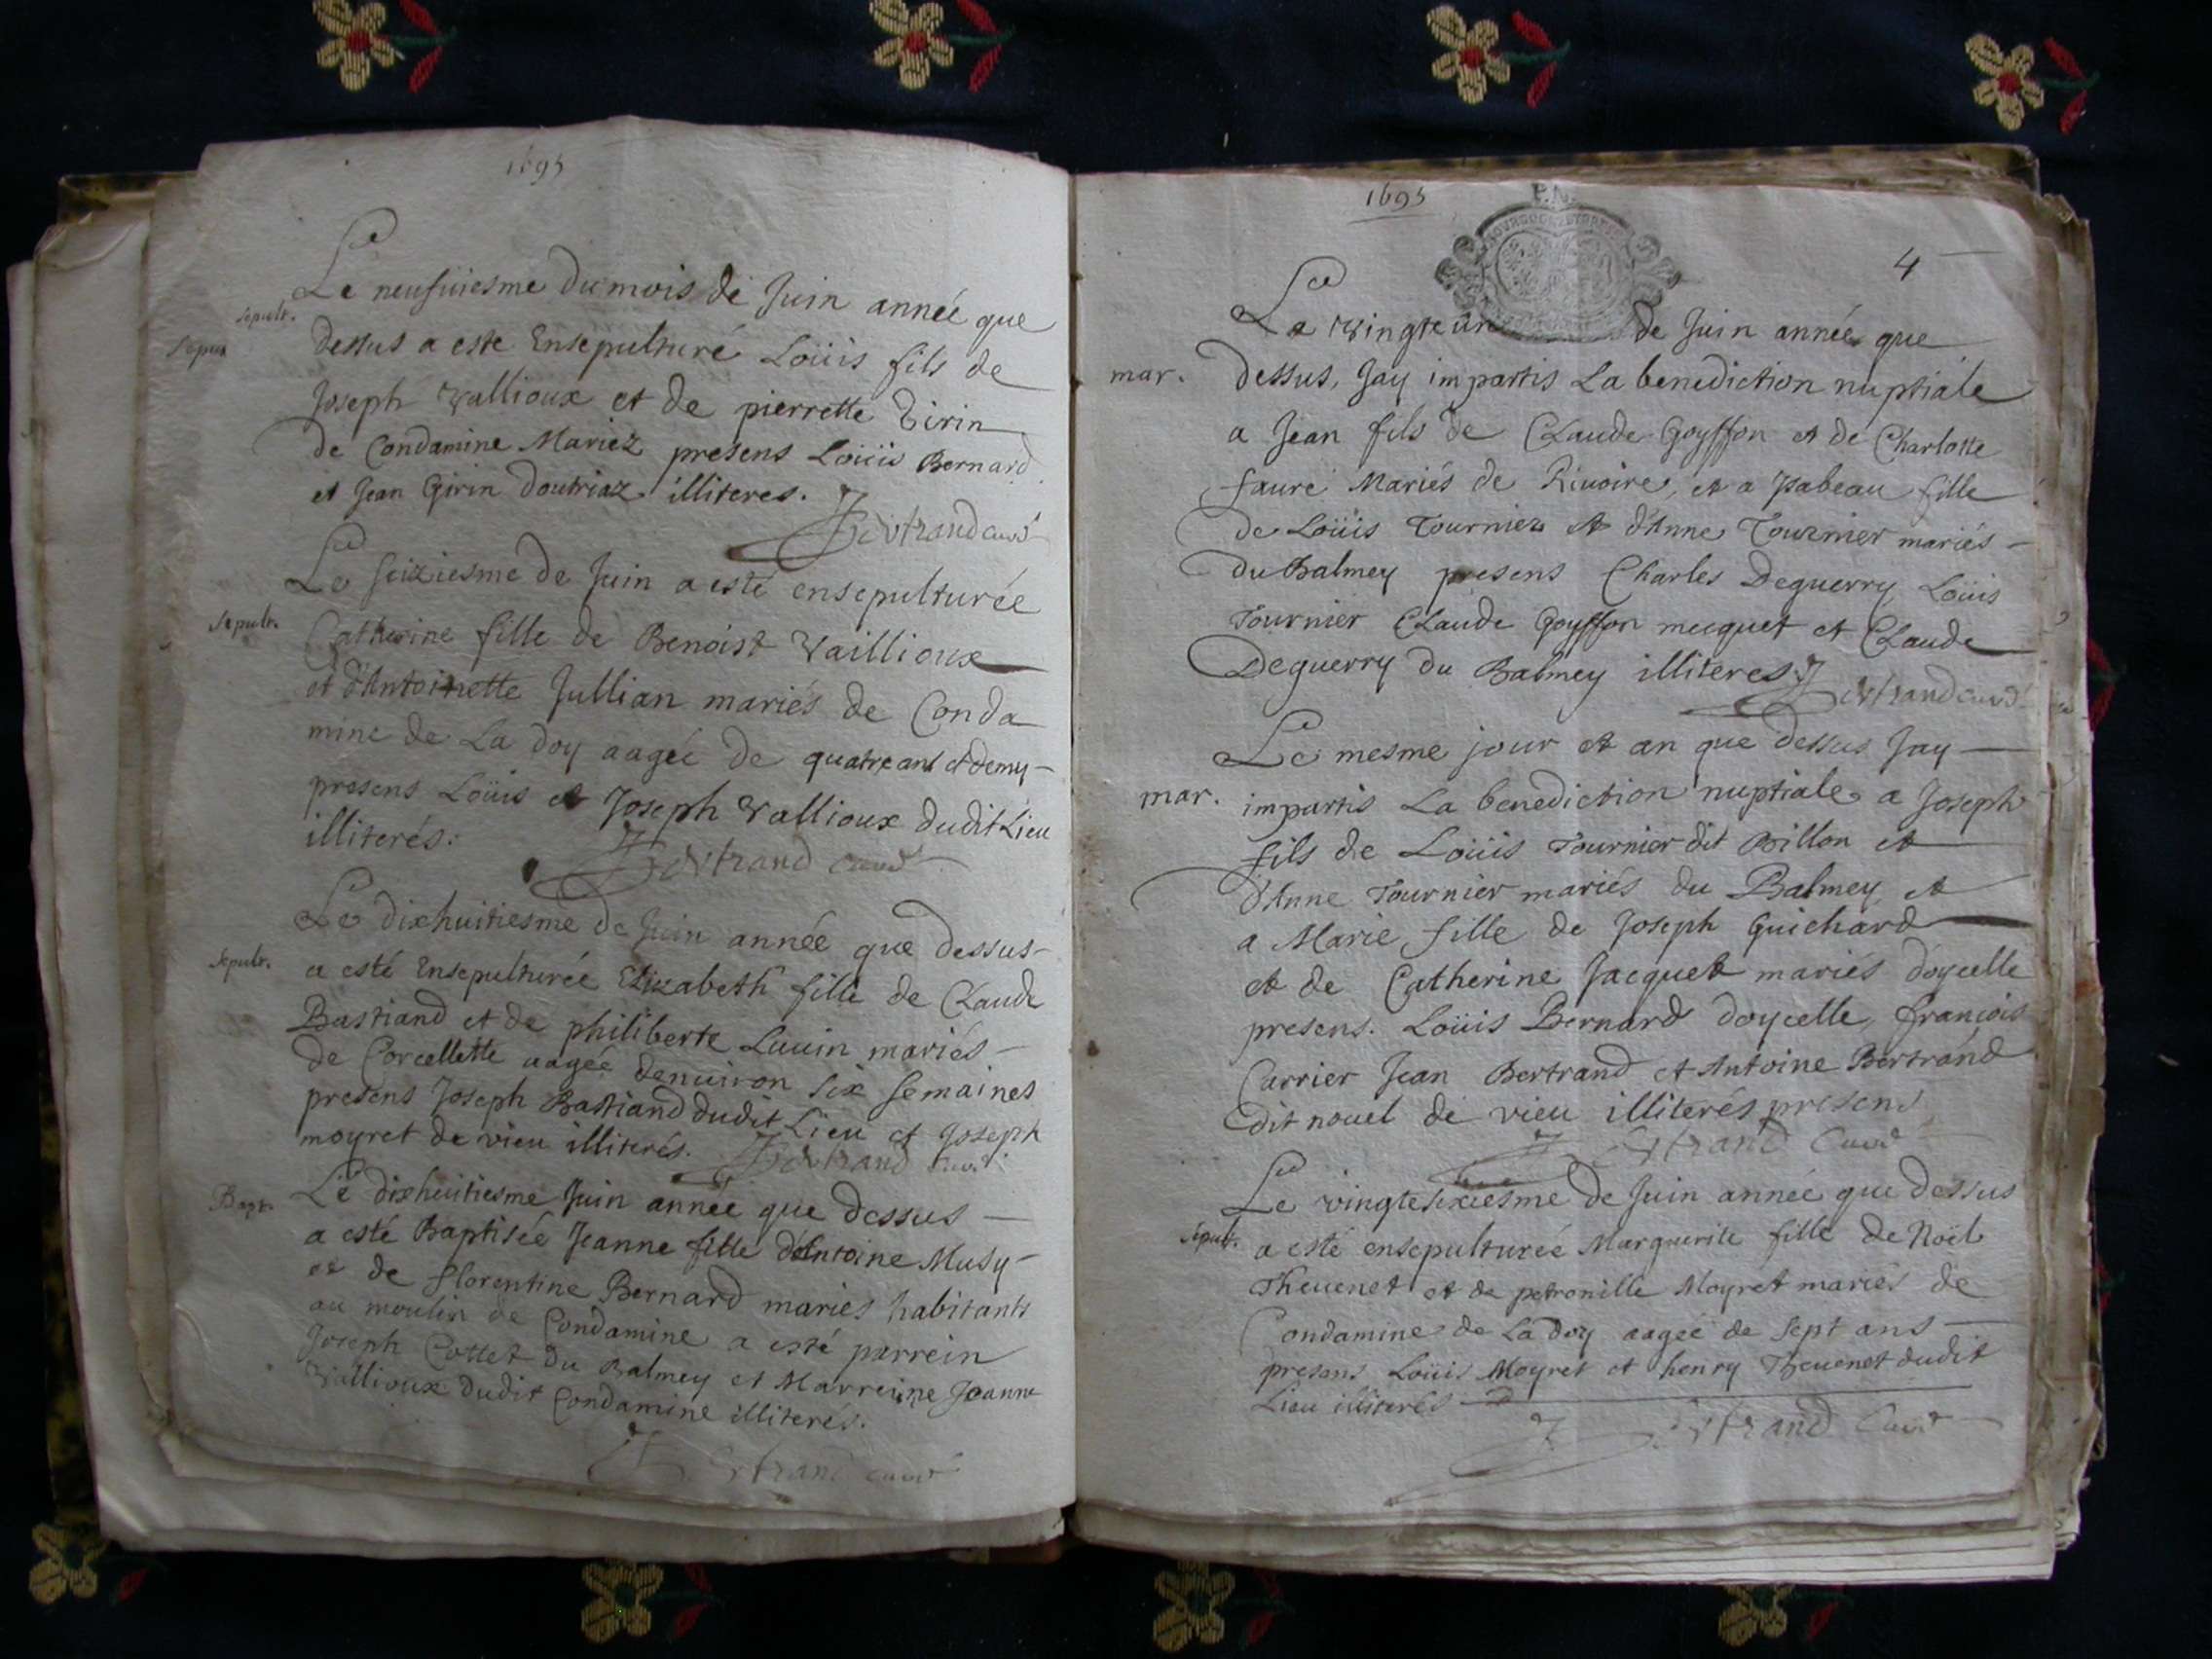 1695
Le neufuiesme du mois de Juin année que
sepult.
dessus a este Ensepulturé Loüis fils de
Joseph Vallioux et de pierrette Girin
de Condamine Mariez presens Loüis Bernard
et Jean Girin doutriaz illiteres.
Bertrand curé
Le seiziesme de Juin a esté ensepulturée
sepult.
Catherine fille de Benoist Vaillioux
et d'Antoinette Jullian mariés de Conda
mine de La doy aagée de quatre ans et demy
presens Loüis et Joseph Vallioux dudit Lieu
illiterés.
Bertrand curé
Le dixhuitiesme de Juin année que dessus
sepult.
a esté Ensepulturée Elizabeth fille de Claude
Bastiand et de philiberte Luuin mariés
de Corcellette aagée denuiron six semaines
presens Joseph Bastiand dudit Lieu et Joseph
moyret de vieu illiterés.
Bertrand curé
Bapt.
Le dixhuitiesme Juin année que dessus
a esté Baptisée Jeanne fille d'Antoine Musy
et de florentine Bernard mariés habitants
au moulin de Condamine a esté parrein
Joseph Cottet du Balmey et Marreine Jeanne
Vallioux dudit Condamine illiterés.
Bertrand curé
1695
4
Le vingte un de Juin année que
mar.
dessus, Jay impartis La benediction nuptiale
a Jean fils de Claude Goyffon et de Charlotte
faure Mariés de Riuoire, et a Isabeau fille
de Loüis Tournier et d'Anne Tournier mariés
du Balmey presens Charles Deguerry Loüis
Tournier Claude Goyffon mecquet et Claude
Deguerry du Balmey illiteres
Bertrand curé
Le mesme jour et an que dessus Jay
mar.
impartis La benediction nuptiale a Joseph
fils de Loüis Tournier dit Billon et
d'Anne Tournier mariés du Balmey, et
a Marie fille de Joseph Guichard
et de Catherine Jacquet mariés doycelle
presens. Loüis Bernard doycelle, françois
Carrier Jean Bertrand et Antoine Bertrand
dit nouel de vieu illiterés presens
Bertrand Curé
Le vingtesixiesme de Juin année que dessus
sepult.
a esté ensepulturée Marguerite fille de Noël
Theuenet et de petronille Moyret mariés de
Condamine de La doy aagée de sept ans
presens Loüis Moyret et henry Theuenet dudit
Lieu illiterés
Bertrand Curé